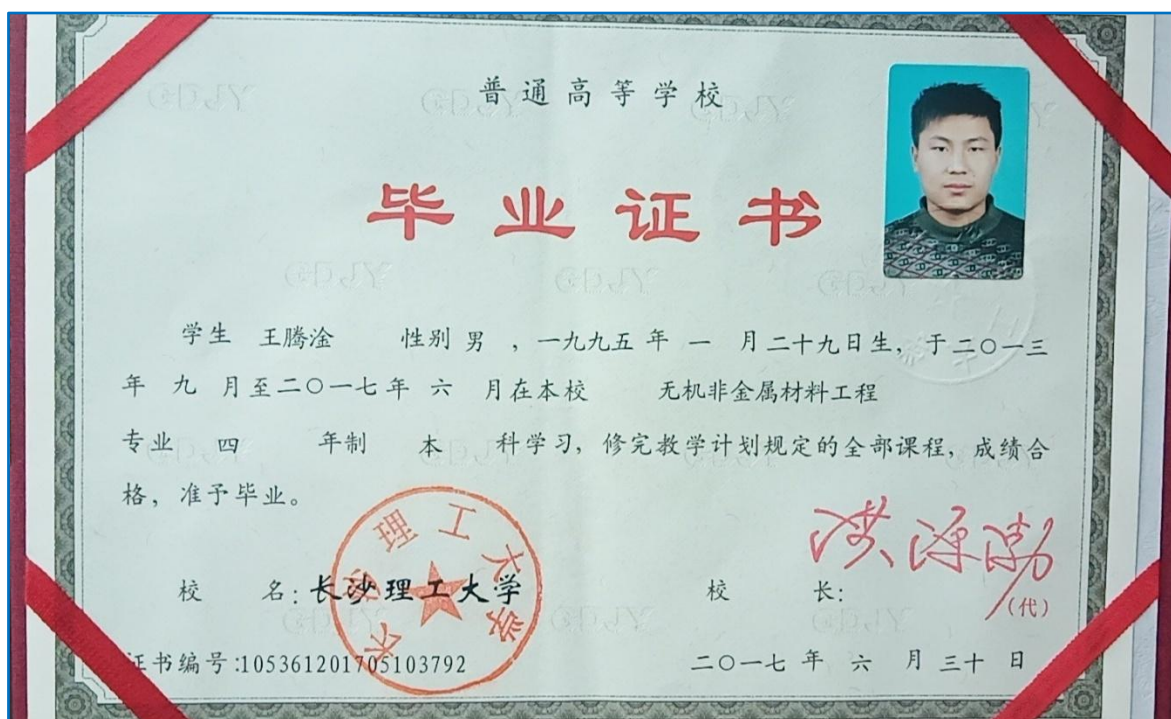 普通高等学校
毕业证书
学生 王腾淦 性别 男 ，一九九五 年 一 月二十九日生，于二〇一三
年 九 月至二〇一七年 六 月在本校 无机非金属材料工程
专业 四 年制 本 科学习，修完教学计划规定的全部课程，成绩合
格，准予毕业。
校 名：长沙理工大学
长沙理工大学
校 长：
洪源渤
（代）
证书编号:105361201705103792
二〇一七 年 六 月 三十 日